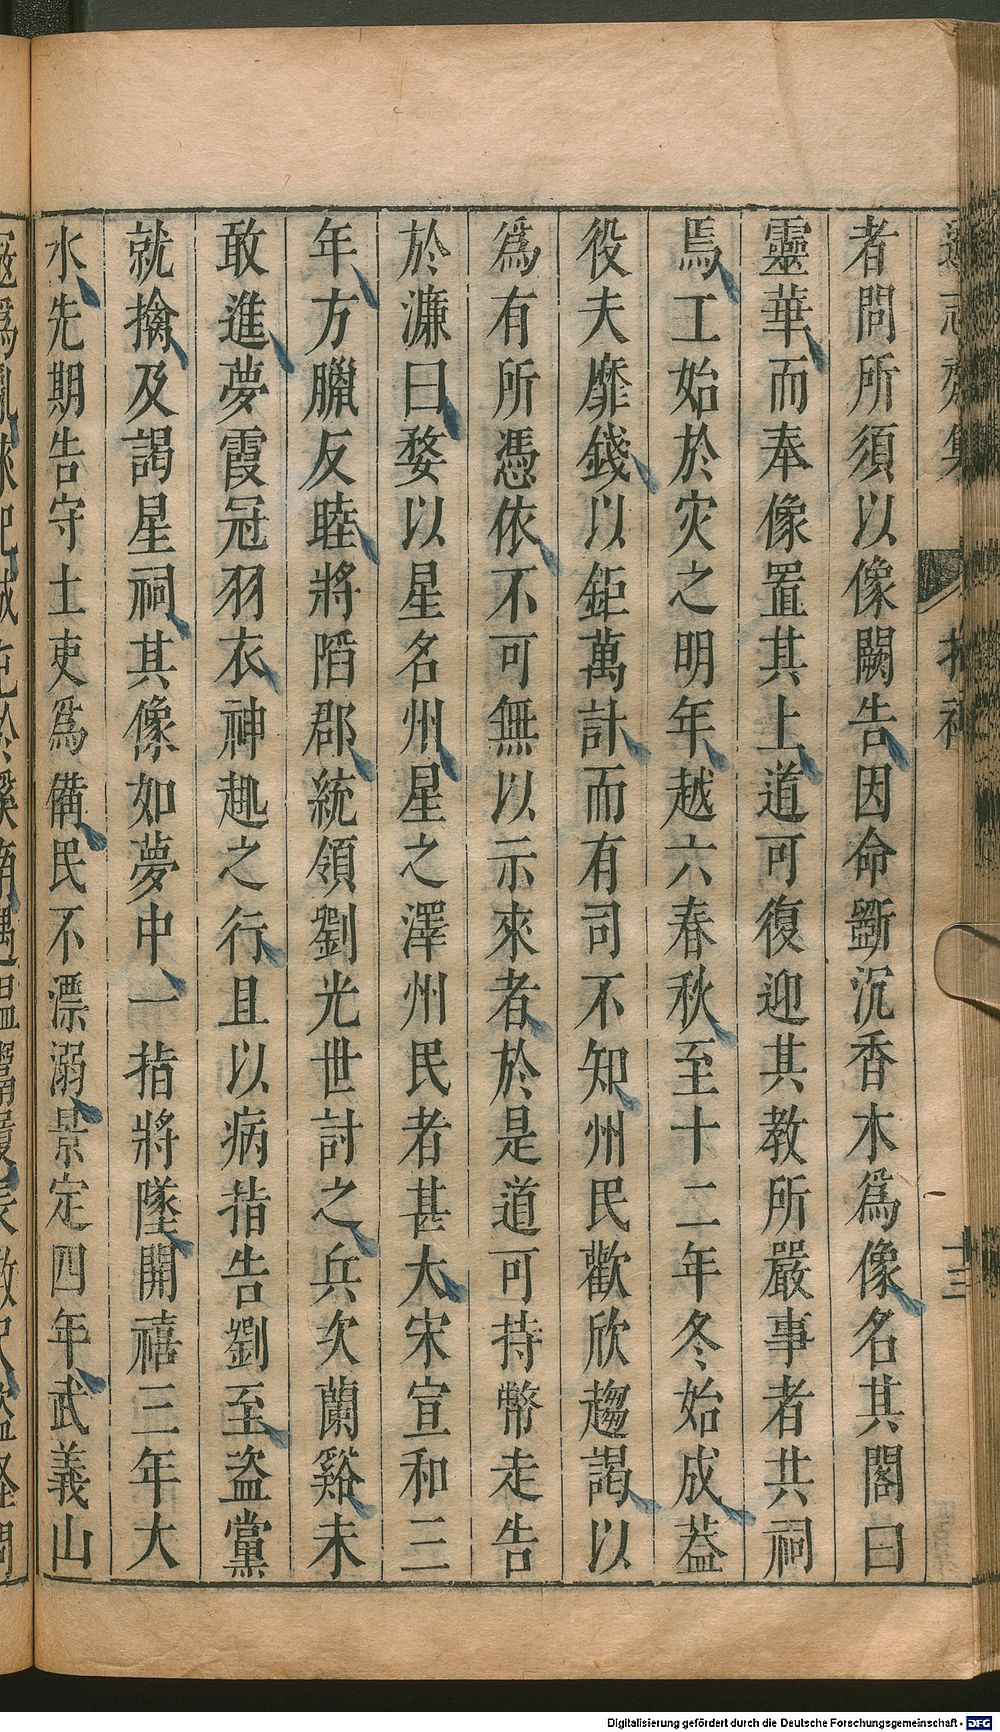 者問所須以像闕告因命斵沉香木爲像名其閣曰
靈華而奉像置其上道可復迎其教所嚴事者共祠
焉工始於灾之明年越六春秋至十二年冬始成葢
役夫靡錢以鉅萬計而有司不知州民歡欣趨謁以
爲有所憑依不可無以示來者於是道可持幣走告
於濂曰婺以星名州星之澤州民者甚大宋宣和三
年方臘反睦將䧟郡統領劉光世討之兵次蘭谿未
敢進夢霞冠羽衣神趣之行且以病指告劉至盜黨
就擒及謁星祠其像如夢中一指將墜開禧三年大
水先期告守土吏爲備民不漂溺景定四年武義山
Digitalisierung gefördert durch die Deutsche Forschungsgemeinschaft - DFG